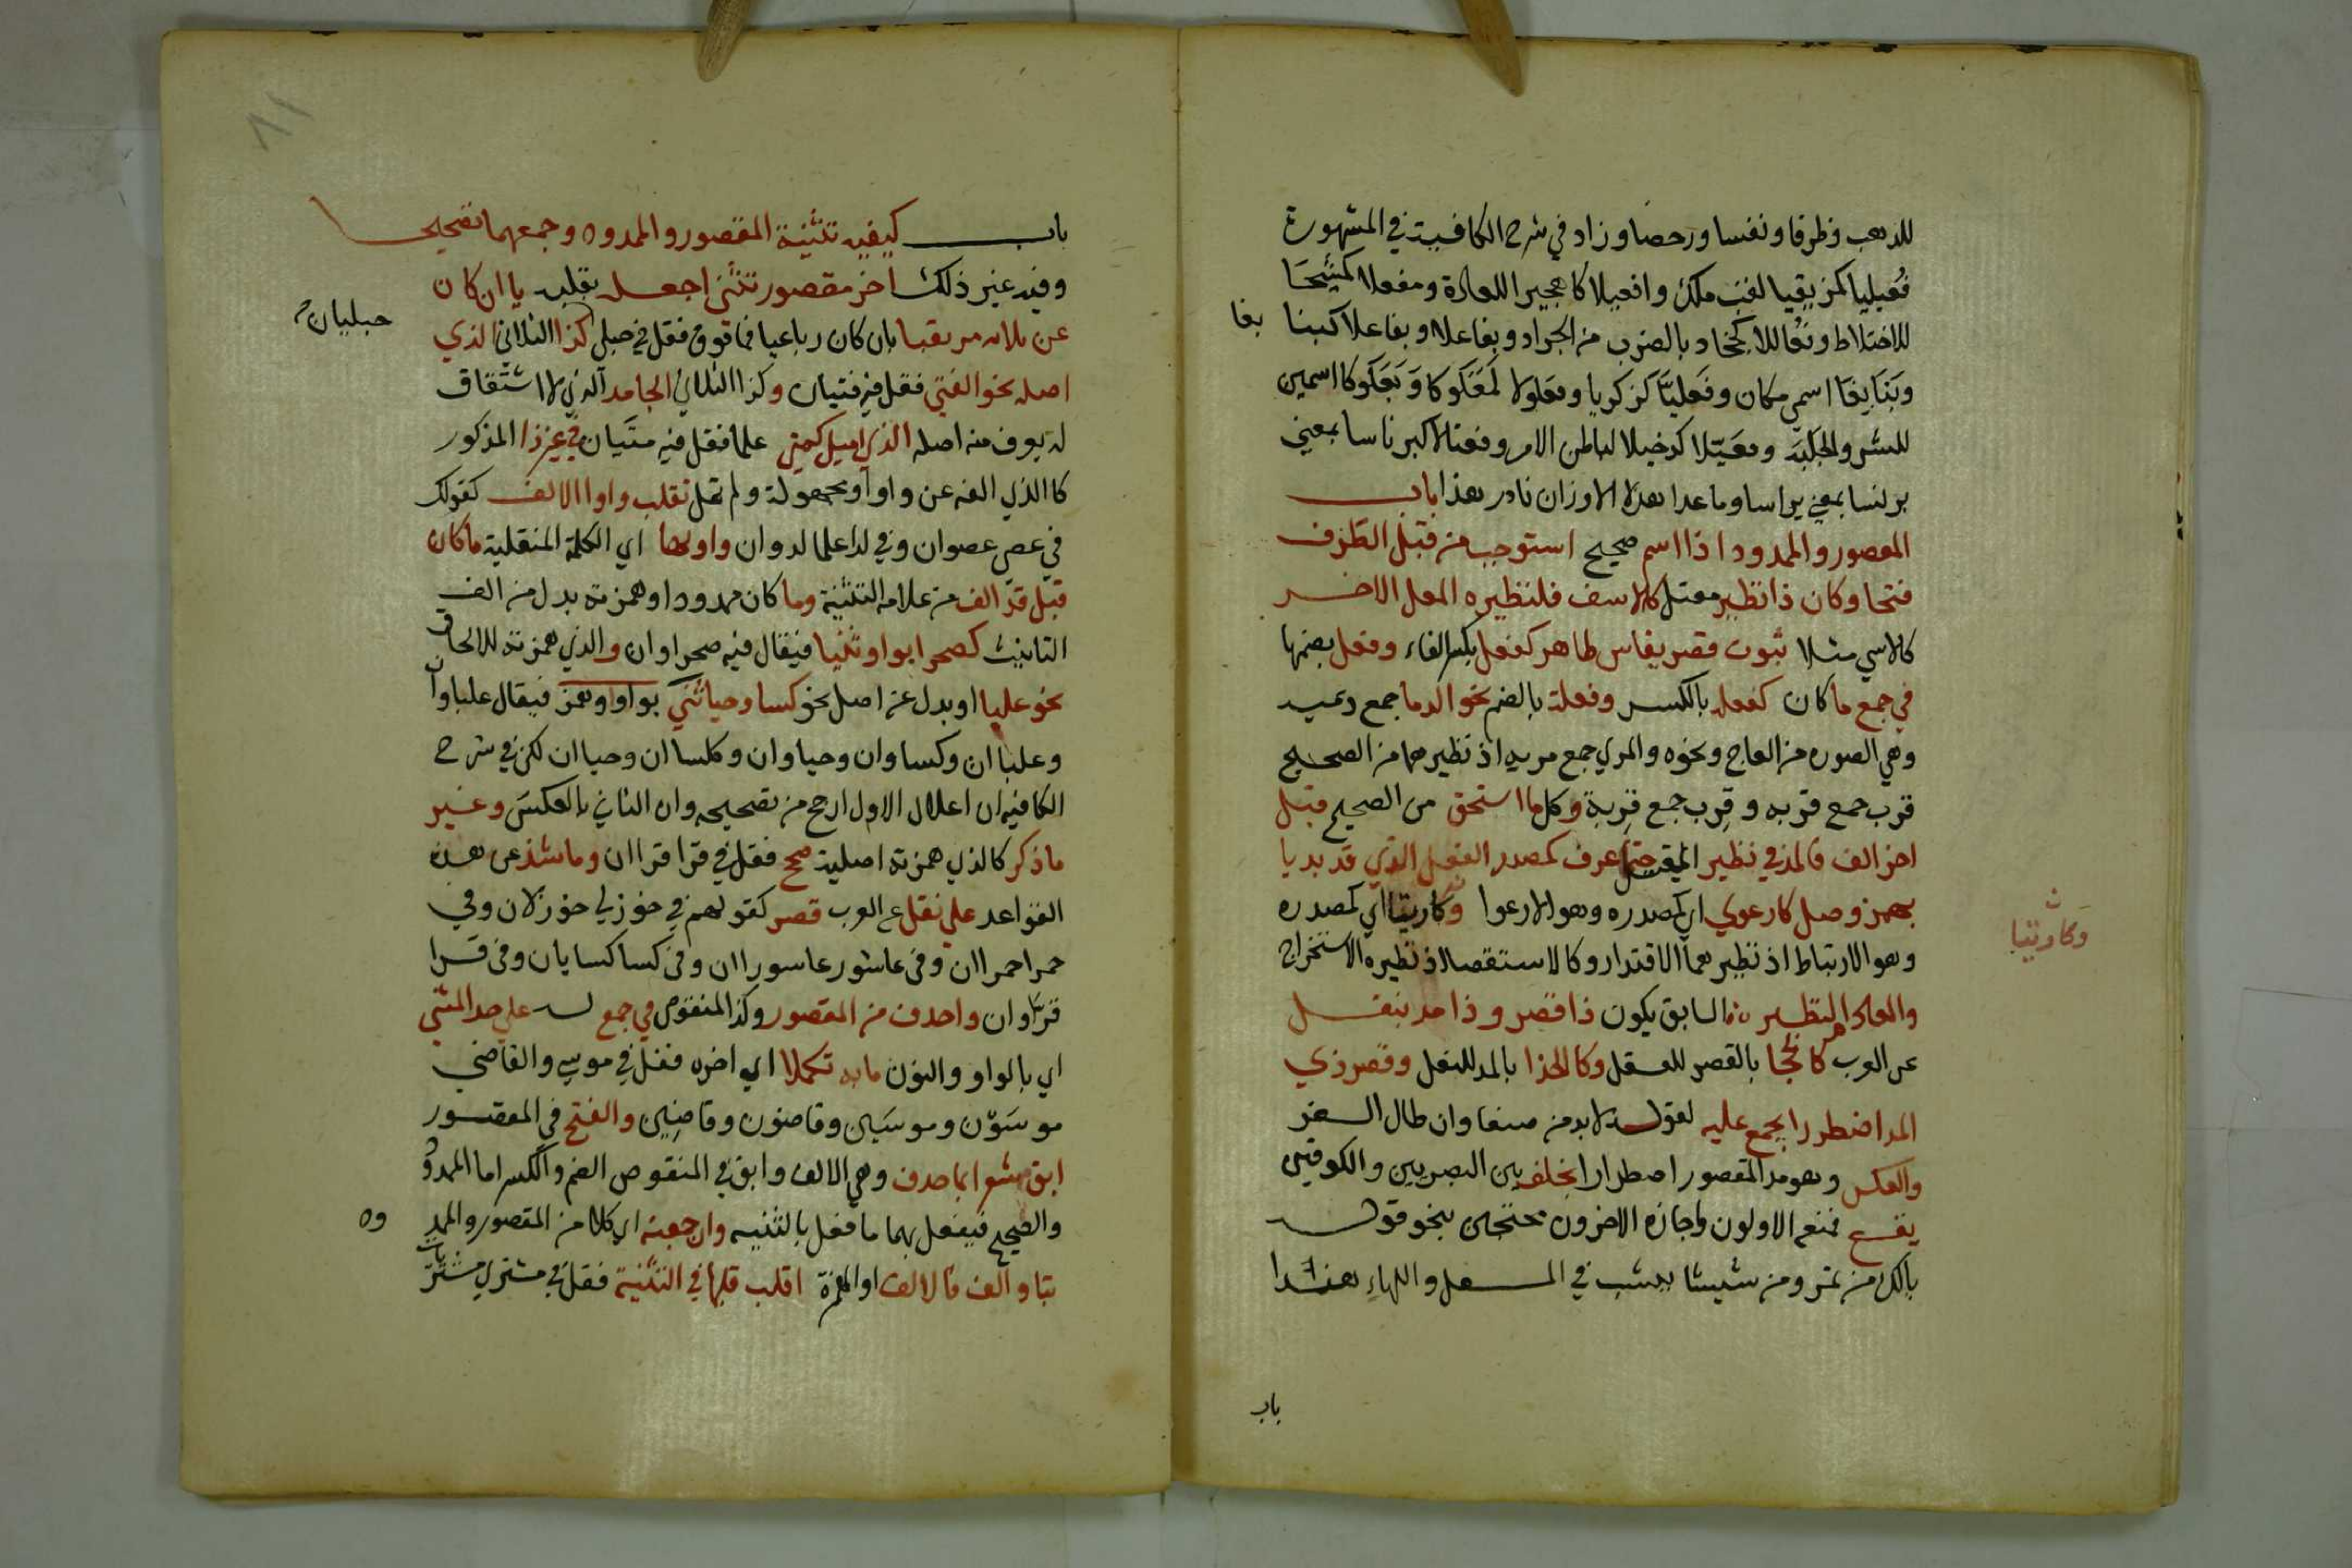 للذهب وظرفا ونفسا ورحضا وزاد في شرح الكافية في المشهورة
فُعيليا كمزيقيا لقب ملك وافعيلا كاهجيرا للعادة ومفعلا كمشيحا
للاختلاط وفعاللا كخخادبا لضرب من الجراد ويفاعلا وبفاعلا كينا
بفا
وبَنَابِيعَا اسمي مكان وفَعليّا كزكريا وفعلولا لمعكوكا وَبَعكوكا اسمين
للشر والجلبة وفعّيلا كدخيلا لباطن الامر وفعنالا كبرناسا بمعني
برنسا بمعني براسا وما عدا هذه الاوزان نادر هذا باب
المعصور والممدود اذا اسم صحيح استوجب من قبل الطرف
فتحا وكان ذا نظير معتل كالاسف فلنظيره المعل الاخر
كالاسي مثلا ثبوت قصر بقاس ظاهر كفعل بكسر الفاء وفعل بضمها
في جمع ما كان كفعله بالكسر وفعلة بالضم نحو الدما جمع دميه
وهي الصوره من العاج ونحوه والمري جمع مريه اذ نظيرهما من الصحيح
قرب جمع قربه و قِرب جمع قِربة وكل ما استحق من الصحيح قبل
اخر الف فالمد في نظيره حتما عرف كمصدر الفعل الذي قد بديا
بهمز وصل كارعوي اي كمصدره وهو الارعوا وكارتيا اي كمصدره
وكارتيا
وهو الارتباط اذ نظيرهما الاقتدار وكالاستقصا اذ نظيره الاستخراج
والعادم النظير السابق يكون ذا قصر وذا مد بنقل
عن العرب كالحجا بالقصر للعقل وكالحذا بالمد للنعل وقصر ذي
المد اضطرارا مجمع عليه لقوله لا بد من صنعا وان طال السفر
والعكس وهو مد المقصور اضطرارا بخلف بين البصريين والكوفيين
يقع فمنعه الاولون واجازه الاخرون محتجين بنحو قوله
يالك من تمر ومن شيشا ينشب في المسعل واللهاء هذا
باب
باب كيفيه تثنية المقصور والممدوه وجمعهما تصحيحا
وفيه غير ذلك اخر مقصور تثني اجعله بقلبه يا ان كان
عن ثلاثه مرتقيا بان كان رباعيا فما فوق فقل في حبلي كذا الثلاثي الذي
حبليان
اصله نحو الفتي فقل فيه فتيان وكذا الثلاثي الجامد الذي لا اشتقاق
له يعرف منه اصله الذي اميل كمتي علما فقل فيه متيان في غير ذا المذكور
كالذي الفه عن واو او مجهولة ولم تمل تقلب واوا الالف كقولك
في عصي عصوان وفي لدا علما لدوان واولها اي الكلمة المنقلبة ما كان
قبل قد الف من علامه التثنية وما كان ممدودا وهمزته بدل من الف
التانيث كصحرا بواو ثنيا فيقال فيه صحراوان والذي همزته للالحاق
نحو عليا او بدل عن اصل نحو كسا وحيا ثني بواو او همز فيقال علباوان
وعلباان وكساوان وحياوان وكلسا ان وحياان لكن في شرح
الكافيه ان اعلال الاول ارجح من تصحيحه وان الثاني بالعكس وغير
ما ذكر كالذي همزته اصلية صحح فقل في قرا قراان وما شذ عن هذه
القواعد علي نقل ع العرب قصر كقولهم في خوزلي خوزلان وفي
حمرا حمراان وفي عاشور عاسوراان وفي كسا كسايان وفي قرا
قرّاوان واحدف من المقصور وكذا المنقوص في جمع له علي حد المثني
اي بالواو والنون ما به تكملا اي اخره فقل في موسي والقاضي
موسَوْن وموسَين وقاضون وقاضِين والفتح في المقصور
ابق مشعرا بما حدف وهي الالف وابق في المنقوص الضم والكسر اما الممدو
والصحيح فيفعل بهما ما فعل بالتثنيه وان جمعته اي كلا من المقصور والممد
وه
بتا والف فالالف او الهمزة اقلب قلبها في التثنية فقل في مشتري مشتريات